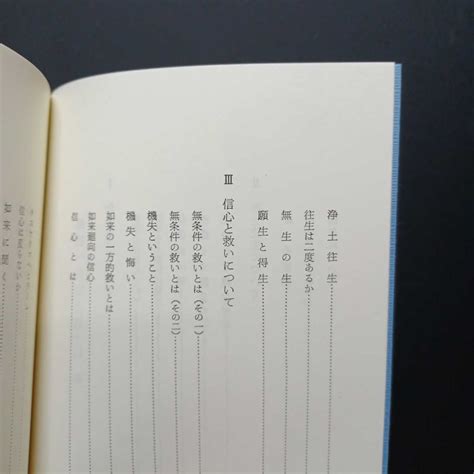 浄土往生
往生は二度あるか
無生の生
願生と得生
Ⅲ 信心と救いについて
無条件の救いとは（その一）
無条件の救いとは（その二）
機失ということ
機失と悔い
如来の一方的救いとは
如来廻向の信心
信心とは
如来に聞く